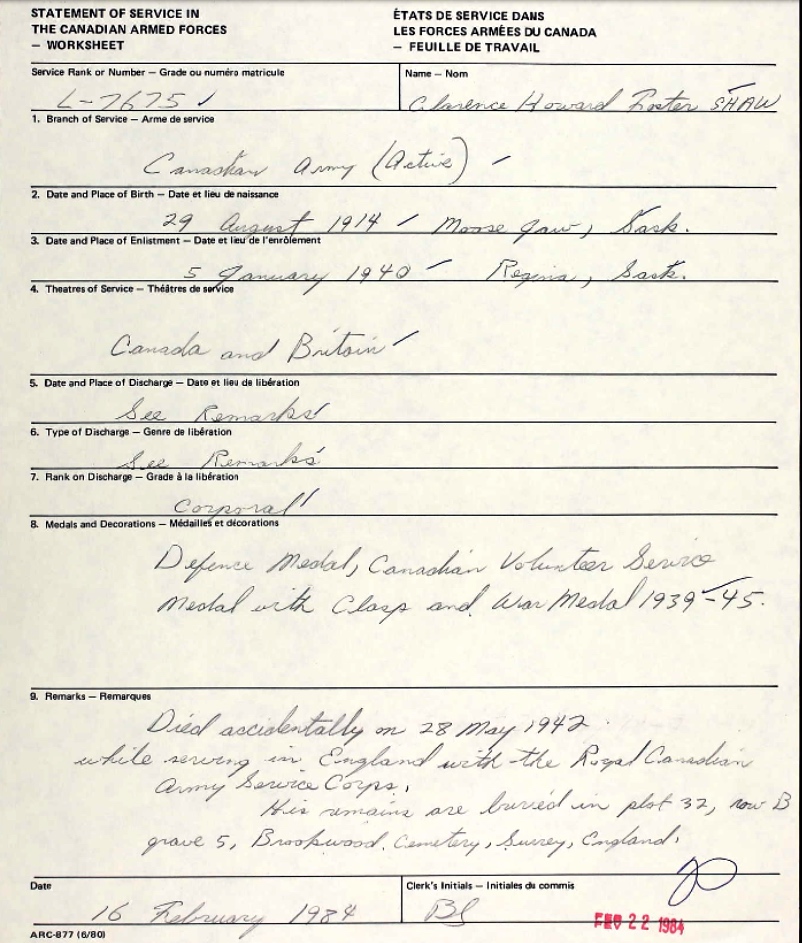 STATEMENT OF SERVICE IN
THE CANADIAN ARMED FORCES
— WORKSHEET
ÉTATS DE SERVICE DANS
LES FORCES ARMÉES DU CANADA
— FEUILLE DE TRAVAIL
Service Rank or Number — Grade ou numéro matricule
L-7675 ✓
Name — Nom
Clarence Howard Foster SHAW
1. Branch of Service — Arme de service
Canadian Army (Active)
2. Date and Place of Birth — Date et lieu de naissance
29 August 1914 Moose Jaw, Sask.
3. Date and Place of Enlistment — Date et lieu de l'enrôlement
5 January 1940 Regina, Sask.
4. Theatres of Service — Théâtres de service
Canada and Britain
5. Date and Place of Discharge — Date et lieu de libération
See Remarks
6. Type of Discharge — Genre de libération
See Remarks
7. Rank on Discharge — Grade à la libération
Corporal
8. Medals and Decorations — Médailles et décorations
Defence Medal, Canadian Volunteer Service
Medal with Clasp and War Medal 1939-45.
9. Remarks — Remarques
Died accidentally on 28 May 1942
while serving in England with the Royal Canadian
Army Service Corps.
His remains are buried in plot 32, row B
grave 5, Brookwood Cemetery, Surrey, England.
Date
16 February 1984
Clerk's Initials — Initiales du commis
FEB 22 1984
ARC-877 (6/80)